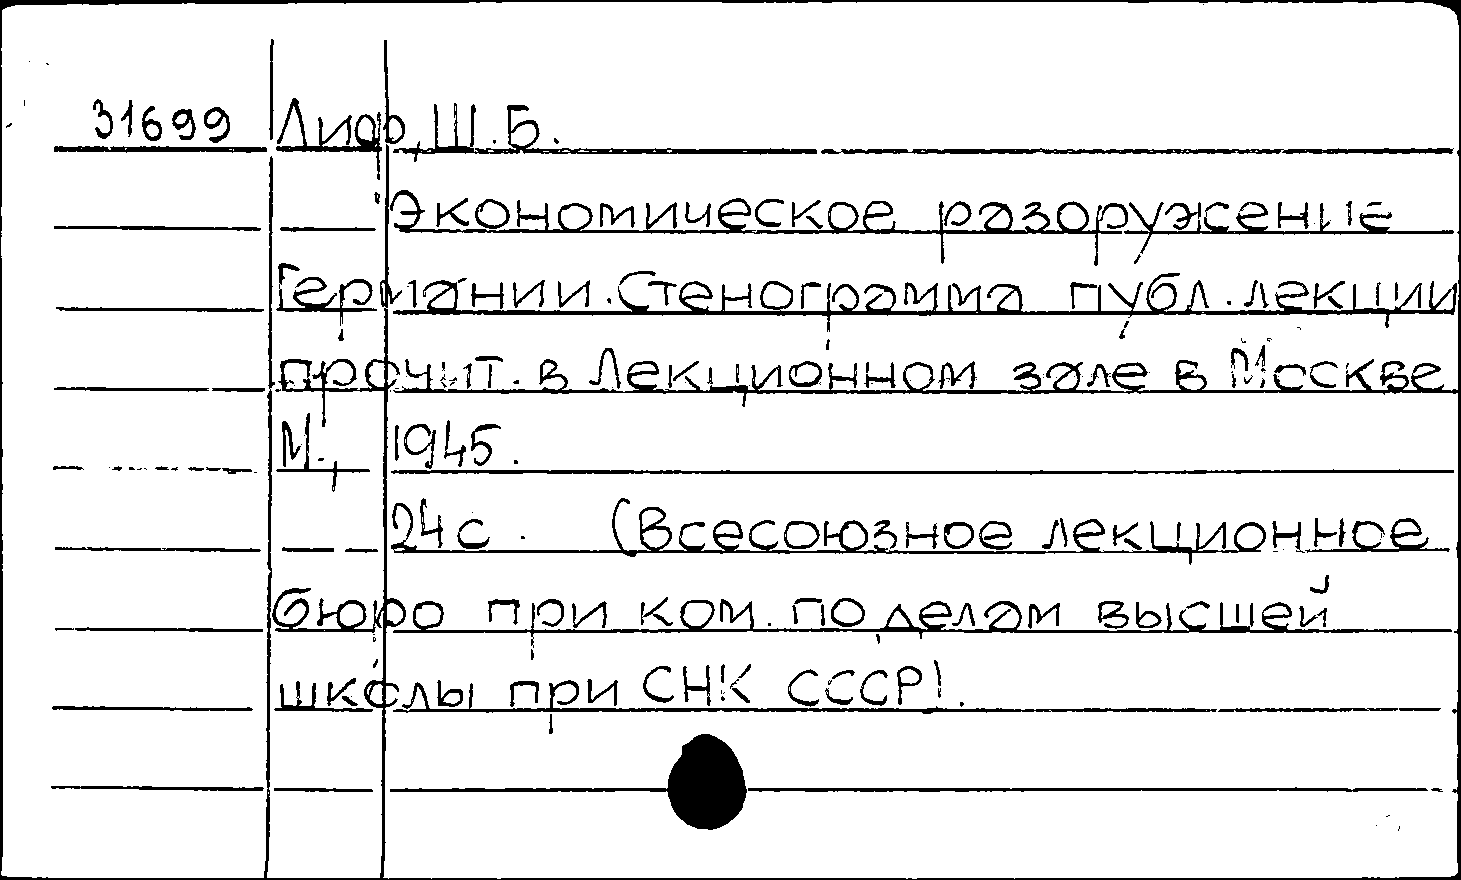 31699 Лиф, Ш.Б.
Экономическое разоружение
Германии. Стенограмма публ. лекции
прочит. в Лекционном зале в Москве
М., 1945.
24 с. (Всесоюзное лекционное
бюро при ком. по делам высшей
школы при СНК СССР).